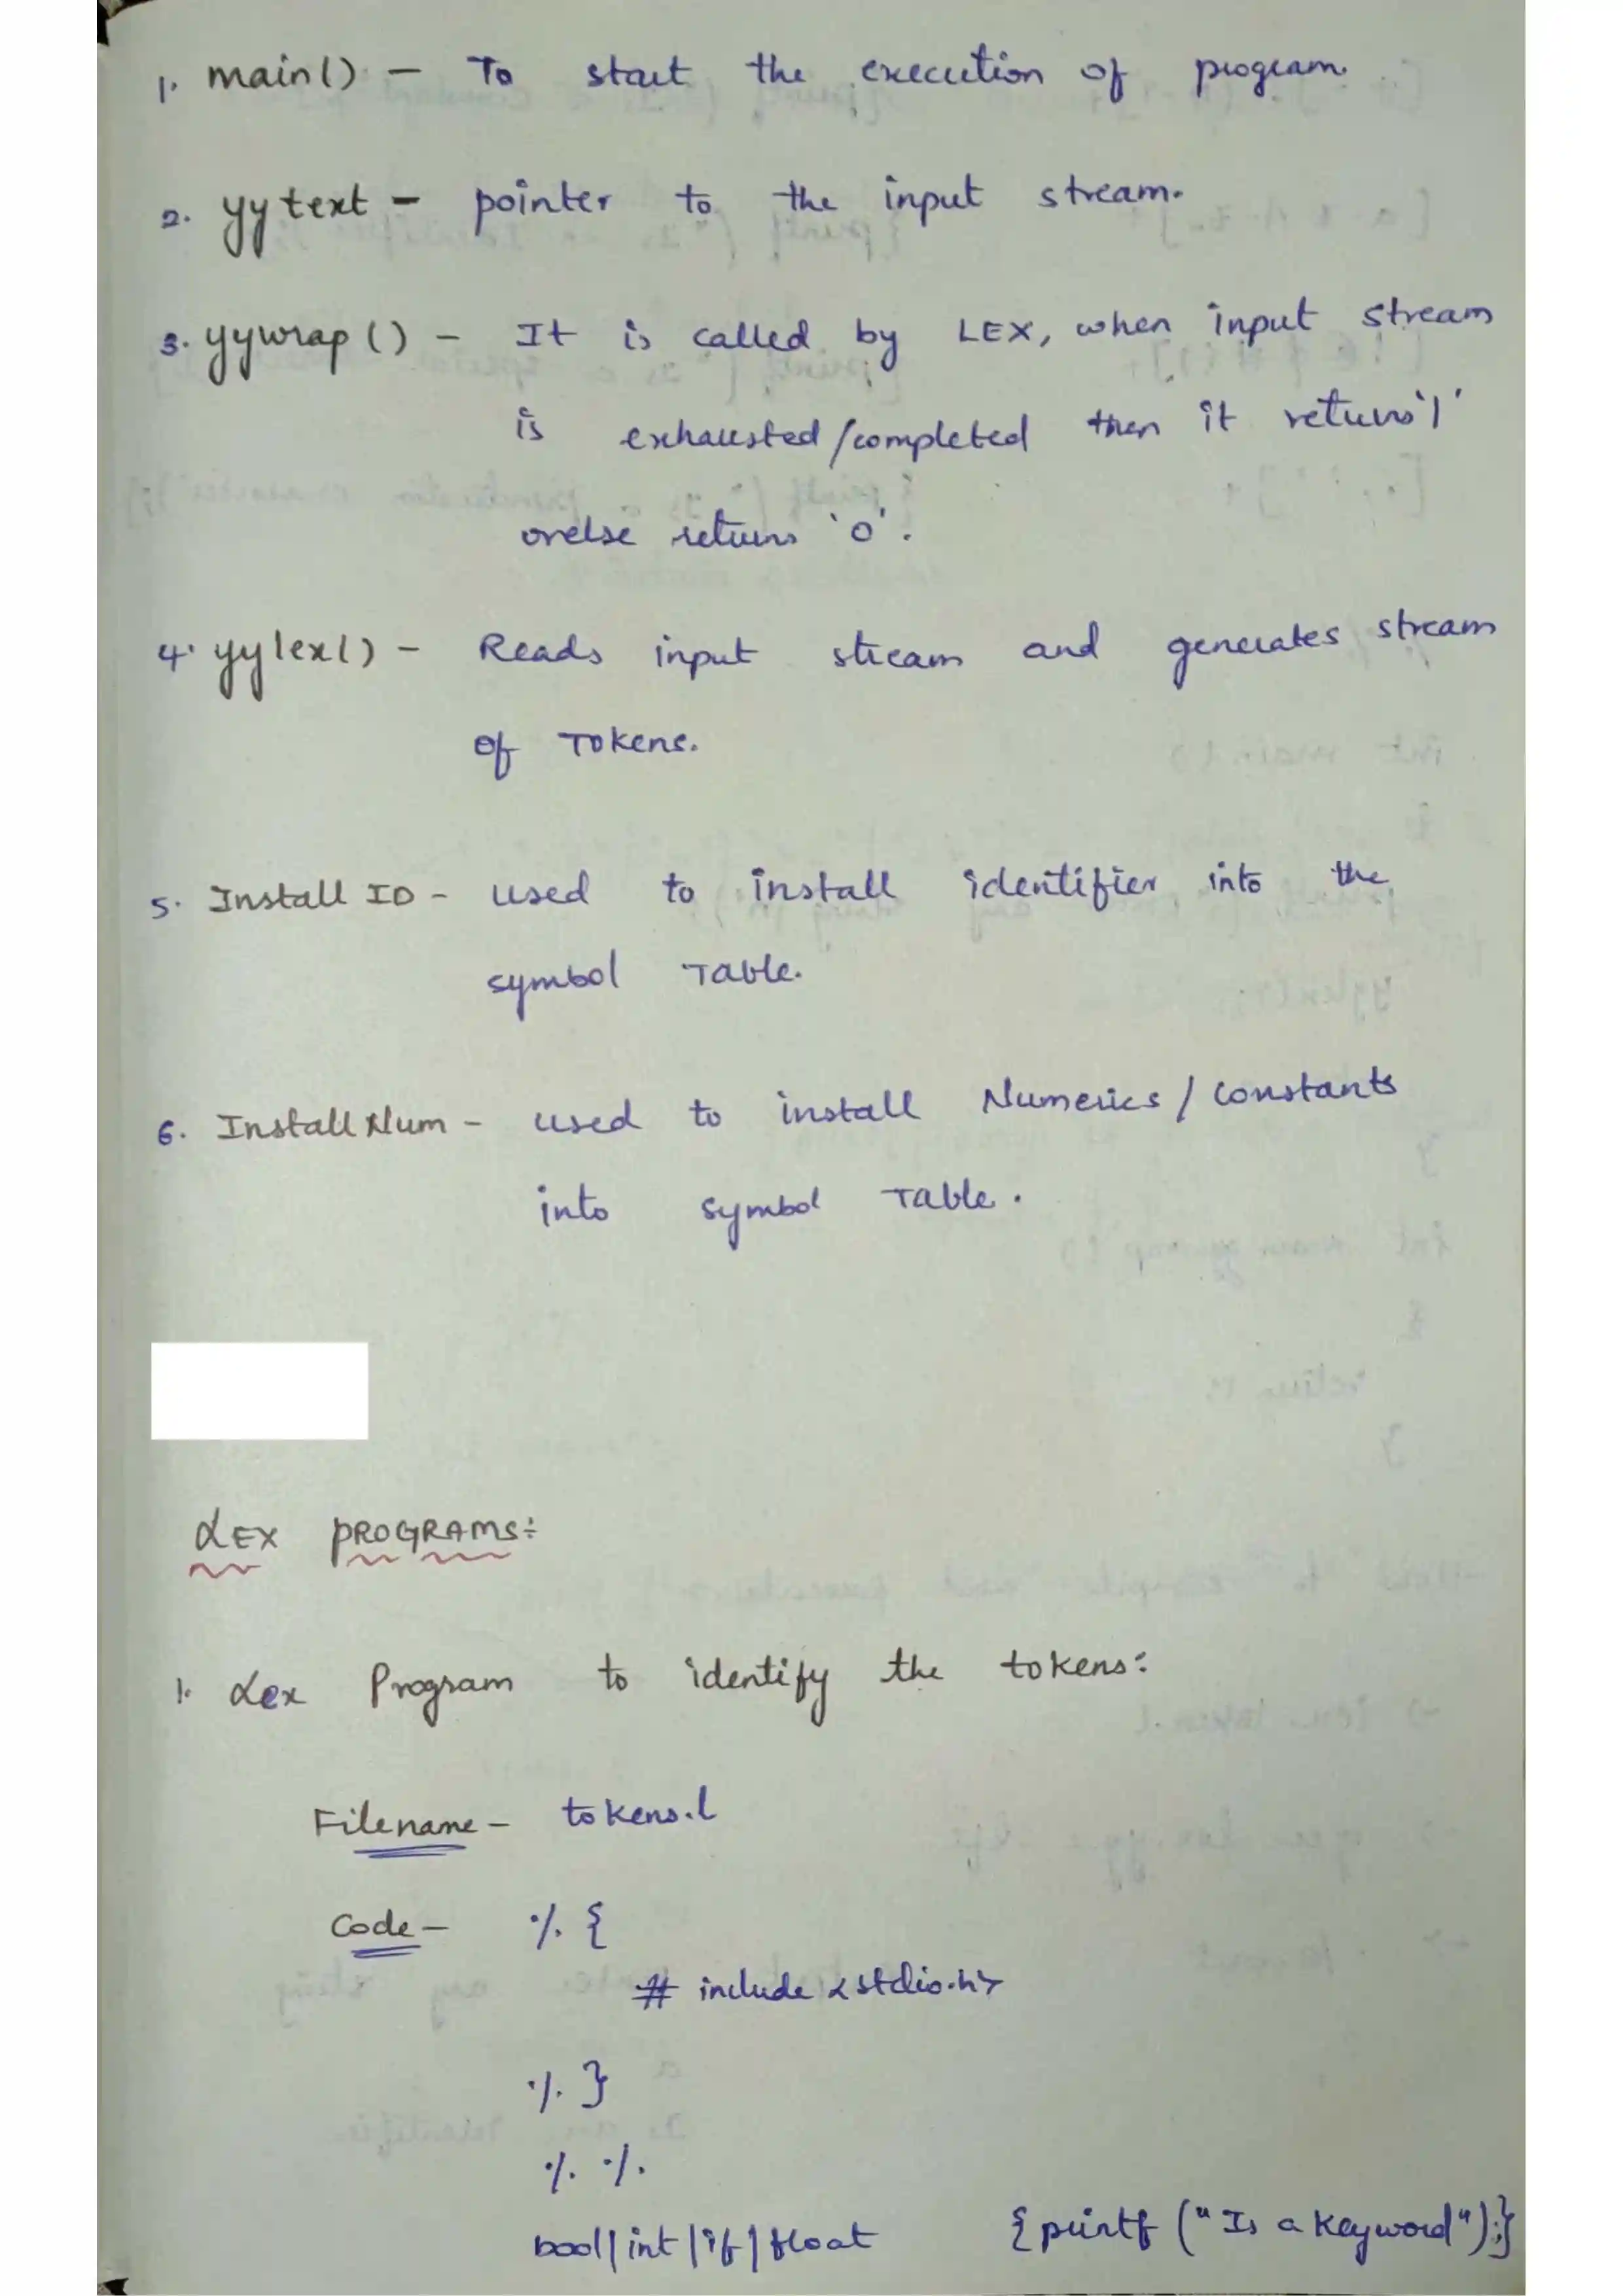 1. main() - To start the execution of program.
2. yytext - pointer to the input stream.
3. yywrap() - It is called by LEX, when input stream
is exhausted/completed then it returns '1'
orelse returns '0'.
4. yylex() - Reads input stream and generates stream
of Tokens.
5. Install ID - used to install identifier into the
symbol Table.
6. Install Num - used to install Numerics / constants
into symbol Table.
LEX PROGRAMS:
1. Lex Program to identify the tokens:
Filename - tokens.l
Code - %{
# include <stdio.h>
%}
%%
bool|int|if|float {printf ("Is a keyword");}